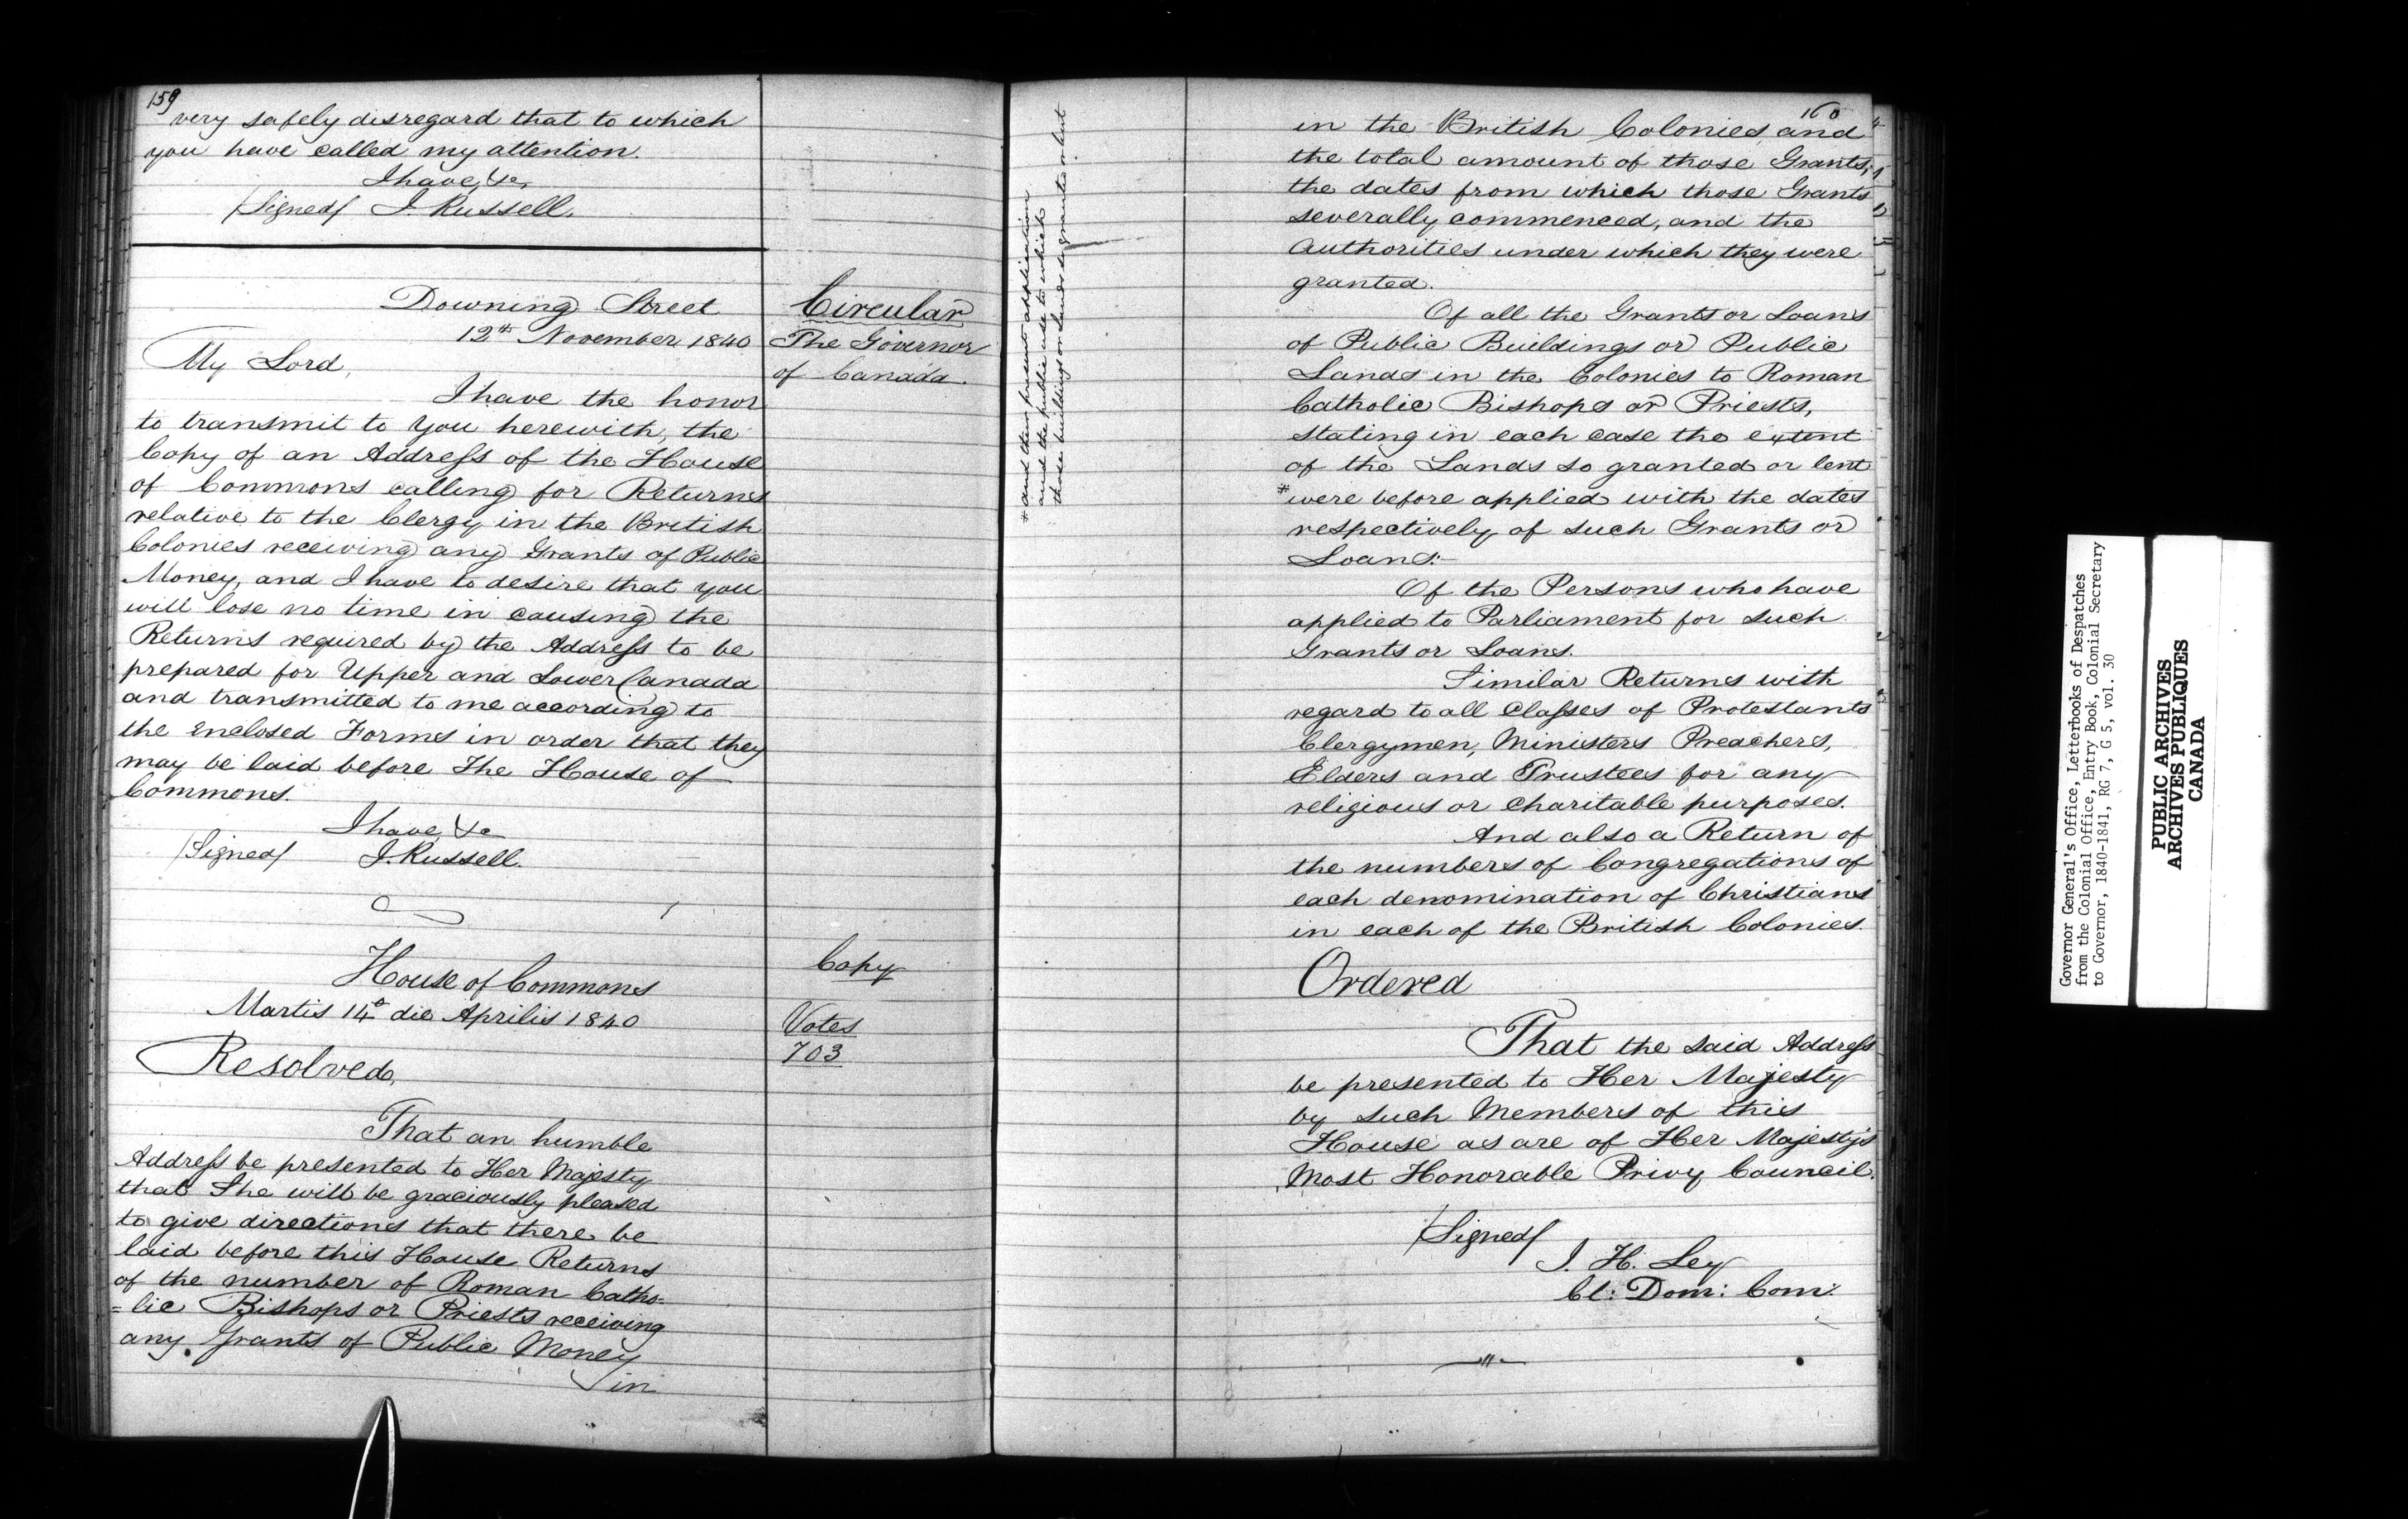 159
very safely disregard that to which
you have called my attention.
I have, &c,
/Signed/ J. Russell.
Downing Street
12th November 1840
Circular
The Governor
of Canada.
My Lord,
I have the honor
to transmit to you herewith, the
Copy of an Address of the House
of Commons calling for Returns
relative to the Clergy in the British
Colonies receiving any Grants of Public
Money, and I have to desire that you
will lose no time in causing the
Returns required by the Address to be
prepared for Upper and Lower Canada
and transmitted to me according to
the enclosed Forms in order that they
may be laid before The House of
Commons.
I have, &c
/Signed/ J. Russell.
House of Commons
Martis 14o die Aprilis 1840
Copy
Votes
703
Resolved,
That an humble
Address be presented to Her Majesty
that She will be graciously pleased
to give directions that there be
laid before this House Returns
of the number of Roman Catho-
=lic Bishops or Priests receiving
any Grants of Public Money
in
160
in the British Colonies and
the total amount of those Grants,
the dates from which those Grants
severally commenced, and the
authorities under which they were
granted.
Of all the Grants or Loans
of Public Buildings or Public
Lands in the Colonies to Roman
Catholic Bishops or Priests,
stating in each case the extent
of the Lands so granted or lent
* were before applied with the dates
respectively of such Grants or
Loans:-
Of the Persons who have
applied to Parliament for such
Grants or Loans.
Similar Returns with
regard to all Classes of Protestants
Clergymen, Ministers Preachers,
Elders and Trustees for any
religious or charitable purposes.
And also a Return of
the numbers of Congregations of
each denomination of Christians
in each of the British Colonies.
Ordered
That the said Address
be presented to Her Majesty
by such Members of this
House as are of Her Majesty's
Most Honorable Privy Council.
/Signed/
J. H. Ley
Cl: Dom: Com:
* and their present application
and the public use to which
those buildings or Lands so granted or lent
Governor General's Office, Letterbooks of Despatches
from the Colonial Office, Entry Book, Colonial Secretary
to Governor, 1840-1841, RG 7, G 5, vol. 30
PUBLIC ARCHIVES
ARCHIVES PUBLIQUES
CANADA